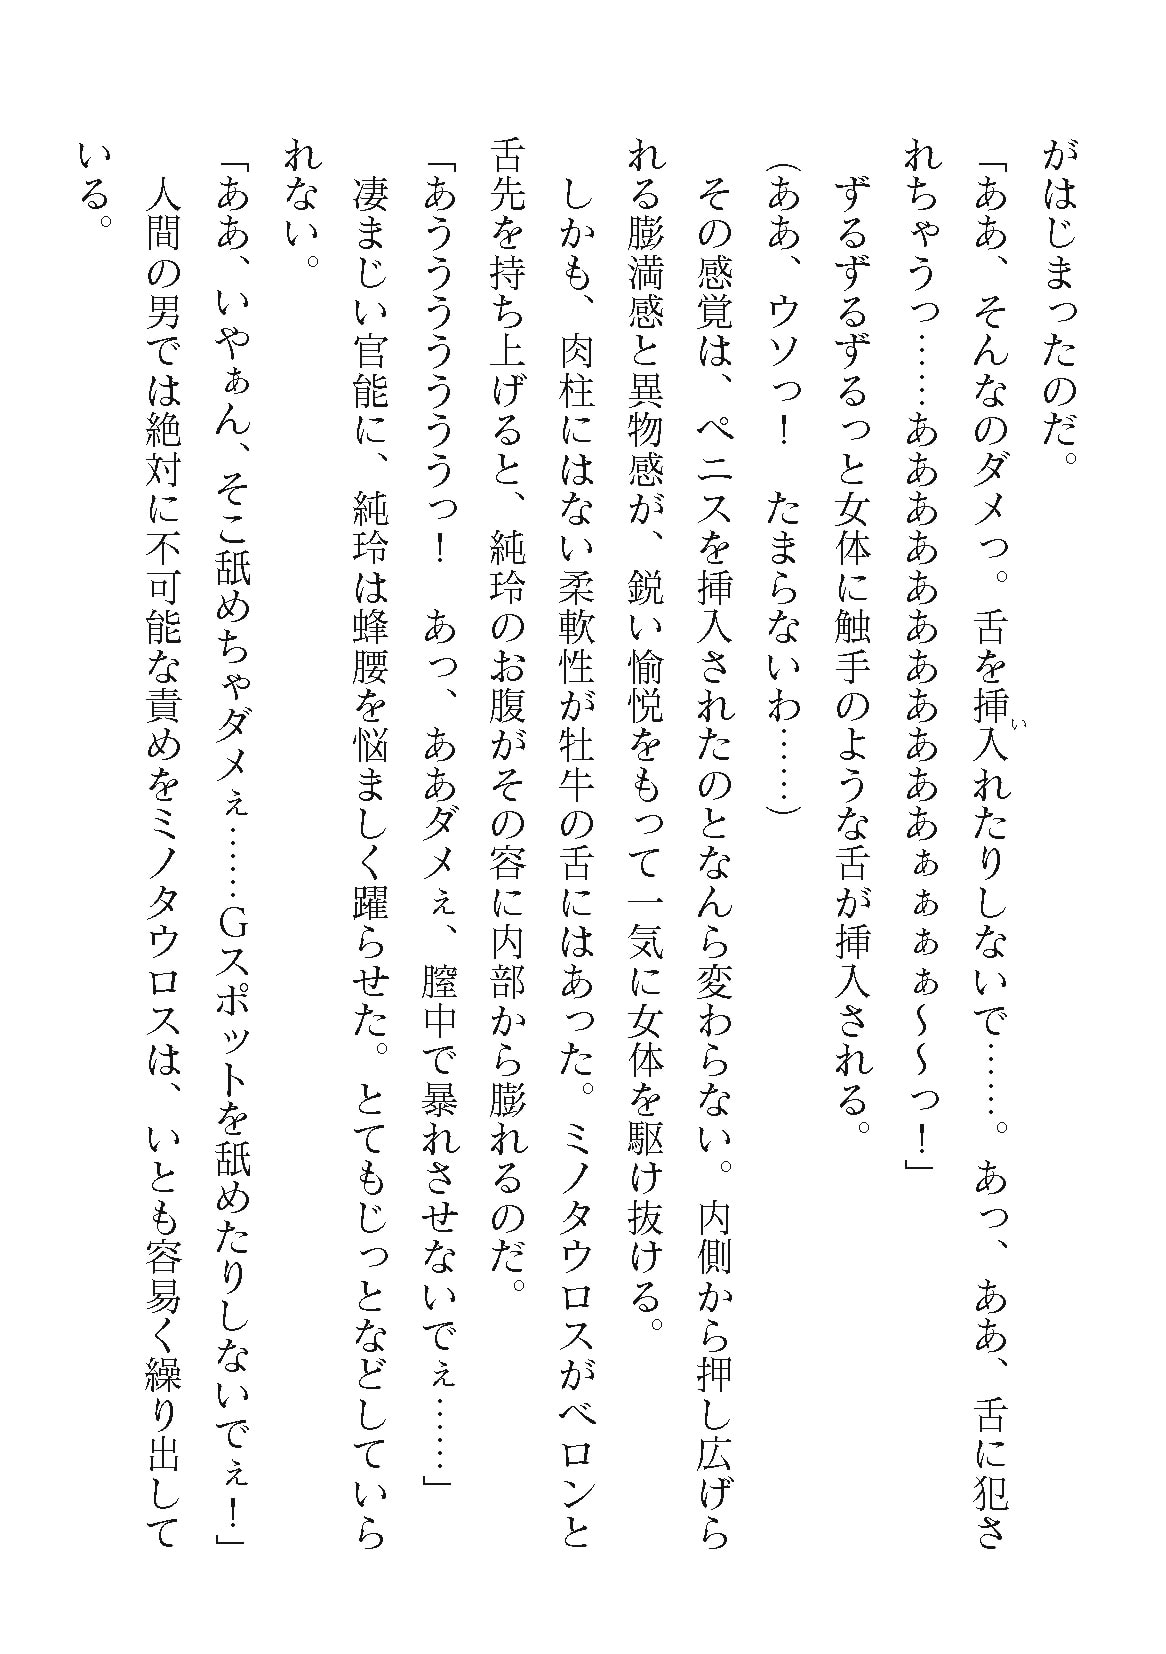 がはじまったのだ。
「ああ、そんなのダメっ。舌を挿入れたりしないで……。あっ、ああ、舌に犯さ
れちゃうっ……ああああああああああぁぁぁぁ～～っ！」
ずるずるずるっと女体に触手のような舌が挿入される。
（ああ、ウソっ！　たまらないわ……）
その感覚は、ペニスを挿入されたのとなんら変わらない。内側から押し広げら
れる膨満感と異物感が、鋭い愉悦をもって一気に女体を駆け抜ける。
しかも、肉柱にはない柔軟性が牡牛の舌にはあった。ミノタウロスがベロンと
舌先を持ち上げると、純玲のお腹がその容に内部から膨れるのだ。
「あうううううううっ！　あっ、ああダメぇ、膣中で暴れさせないでぇ……」
凄まじい官能に、純玲は蜂腰を悩ましく躍らせた。とてもじっとなどしていら
れない。
「ああ、いやぁん、そこ舐めちゃダメぇ……Ｇスポットを舐めたりしないでぇ！」
人間の男では絶対に不可能な責めをミノタウロスは、いとも容易く繰り出して
いる。